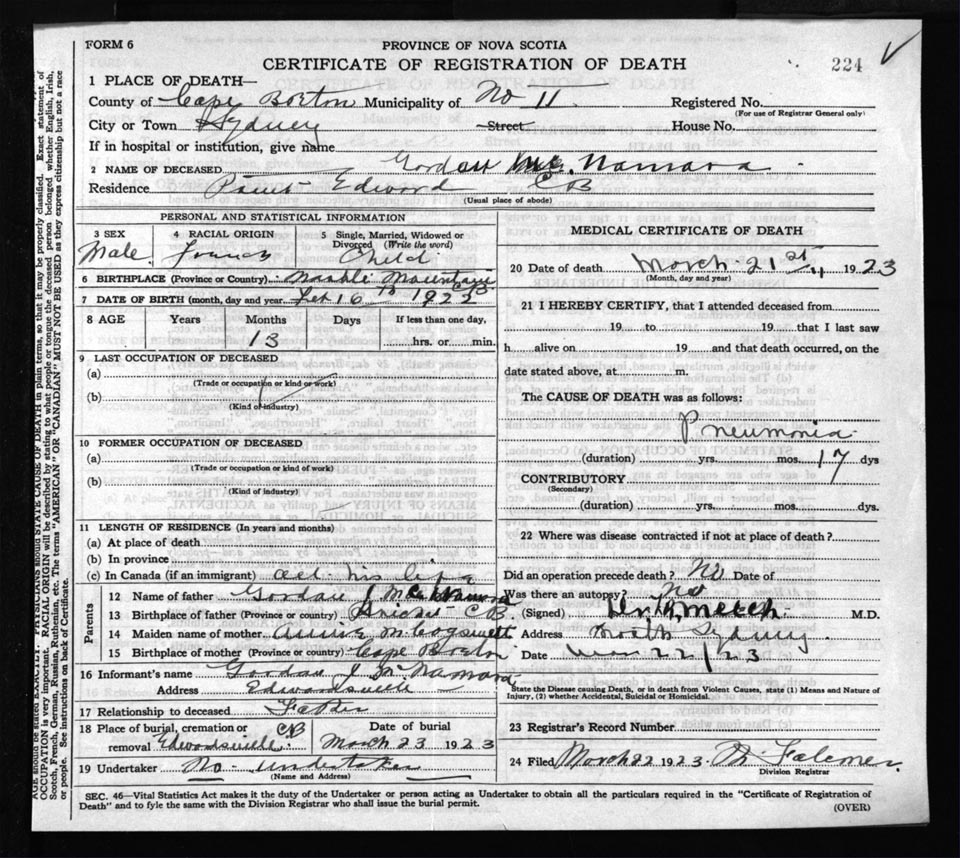 FORM 6
PROVINCE OF NOVA SCOTIA
CERTIFICATE OF REGISTRATION OF DEATH
224
1 PLACE OF DEATH—
County of Cape Breton Municipality of No 11 Registered No.
(For use of Registrar General only)
City or Town Sydney Street House No.
If in hospital or institution, give name
2 NAME OF DECEASED Gordon Mc Namara
Residence Point Edward CB
(Usual place of abode)
PERSONAL AND STATISTICAL INFORMATION
3 SEX Male
4 RACIAL ORIGIN
5 Single, Married, Widowed or Divorced (Write the word) Child
6 BIRTHPLACE (Province or Country) Marble Mountain CB
7 DATE OF BIRTH (month, day and year) Feb 16th 1922
8 AGE Years Months Days If less than one day,
13 hrs. or min.
9 LAST OCCUPATION OF DECEASED
(a)
(Trade or occupation or kind of work)
(b)
(Kind of industry)
10 FORMER OCCUPATION OF DECEASED
(a)
(Trade or occupation or kind of work)
(b)
(Kind of industry)
11 LENGTH OF RESIDENCE (In years and months)
(a) At place of death
(b) In province
(c) In Canada (if an immigrant) all his life
Parents
12 Name of father Gordon J McNamara
13 Birthplace of father (Province or country) CB
14 Maiden name of mother Annie M Cogswell
15 Birthplace of mother (Province or country) Cape Breton
16 Informant's name Gordon J McNamara
Address Edwardsville
17 Relationship to deceased Father
18 Place of burial, cremation or removal Edwardsville CB
Date of burial March 23 1923
19 Undertaker No undertaker
(Name and Address)
MEDICAL CERTIFICATE OF DEATH
20 Date of death March 21st 1923
(Month, day and year)
21 I HEREBY CERTIFY, that I attended deceased from
19 to 19 that I last saw
h alive on 19 and that death occurred, on the
date stated above, at m.
The CAUSE OF DEATH was as follows:
Pneumonia
(duration) yrs. mos. 17 dys
CONTRIBUTORY
(Secondary)
(duration) yrs. mos. dys.
22 Where was disease contracted if not at place of death?
Did an operation precede death? No Date of
Was there an autopsy? No
(Signed) M.D.
Address North Sydney
Date Mar 22/23
State the Disease causing Death, or in death from Violent Causes, state (1) Means and Nature of
Injury, (2) whether Accidental, Suicidal or Homicidal.
23 Registrar's Record Number
24 Filed March 22 1923
Division Registrar
SEC. 46—Vital Statistics Act makes it the duty of the Undertaker or person acting as Undertaker to obtain all the particulars required in the "Certificate of Registration of
Death" and to fyle the same with the Division Registrar who shall issue the burial permit.
(OVER)
AGE should be stated EXACTLY. PHYSICIANS should STATE CAUSE OF DEATH in plain terms, so that it may be properly classified. Exact statement of
OCCUPATION is very important. RACIAL ORIGIN will be described by stating to what people or tongue the deceased person belonged whether English, Irish,
Scotch, French, German, Russian, Ruthenian, etc. The terms "AMERICAN" OR "CANADIAN" MUST NOT BE USED as they express citizenship but not a race
or people. See instructions on back of Certificate.